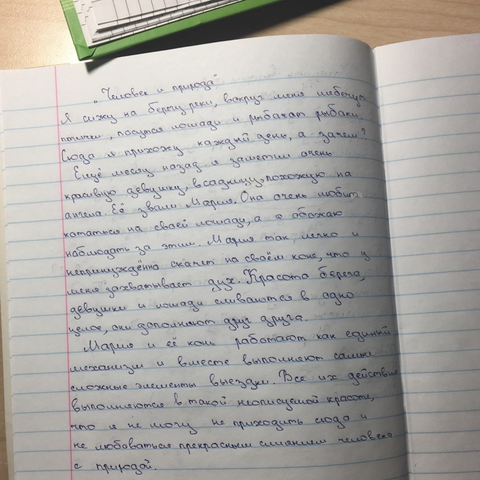 "Человек и природа"
Я сижу на берегу реки, вокруг меня щебечут
птички, пасутся лошади и рыбачат рыбаки.
Сюда я прихожу каждый день, а зачем?
Ещё месяц назад я заметил очень
красивую девушку-всадницу, похожую на
ангела. Её звали Мария. Она очень любит
кататься на своей лошади, а я обожаю
наблюдать за этим. Мария так легко и
непринуждённо скачет на своём коне, что у
меня захватывает дух. Красота берега,
девушки и лошади сливаются в одно
целое, они дополняют друг друга.
Мария и её конь работают как единый
механизм и вместе выполняют самые
сложные элементы выездки. Все их действия
выполняются в такой неописуемой красоте,
что я не могу не приходить сюда и
не любоваться прекрасным слиянием человека
с природой.